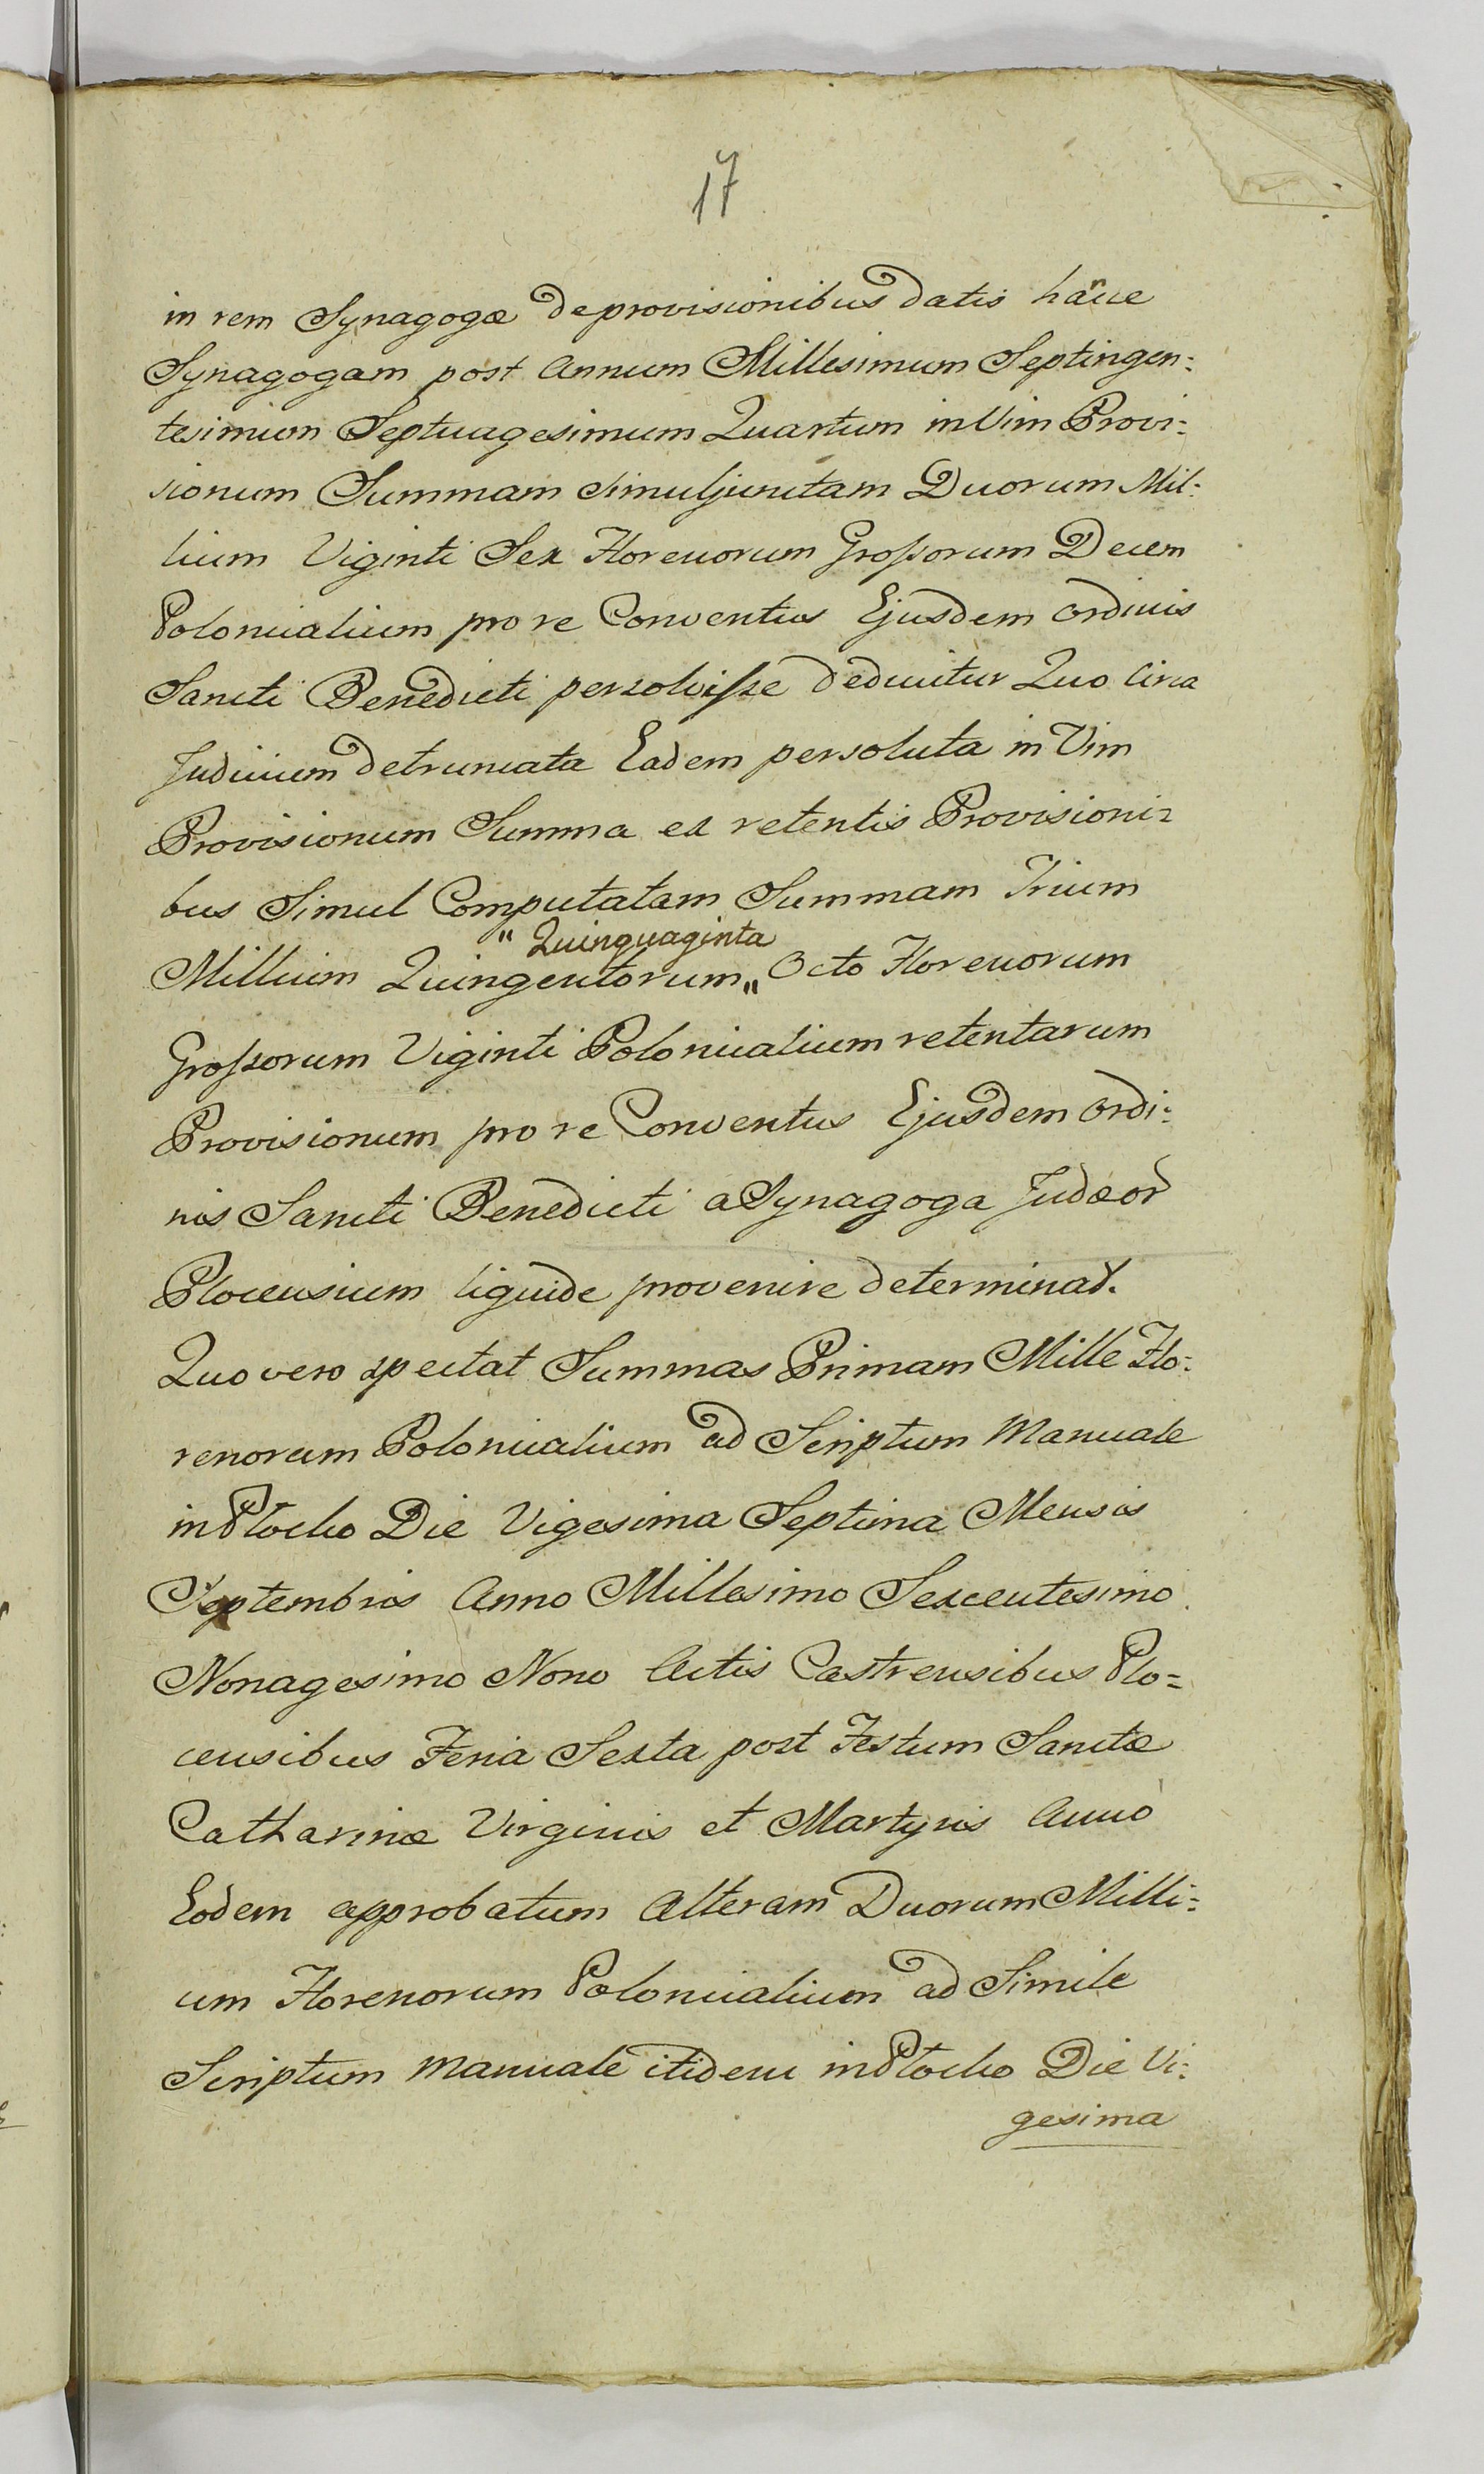 17
in rem Synagogæ de provisionibus datis hancce
Synagogam post Annum Millesimum Septingen:
tesimum Septuagesimum Quartum in Vim Provi:
sionum Summam simuljunctam Duorum Mil:
lium Viginti Sex Florenorum Grossorum Decem
Polonicalium pro re Conventus Ejusdem Ordinis
Sancti Benedicti persolvisse deducitur Quo Circa
Judicium detruncata Eadem persoluta in Vim
Provisionum Summa ex retentis Provisioni:
bus Simul Computatam Summam Trium
" Quinquaginta
Millium Quingentorum " Octo Florenorum
Grossorum Viginti Polonicalium retentarum
Provisionum pro re Conventus Ejusdem Ordi:
nis Sancti Benedicti a Synagoga Judæor
Plocensium liquide provenire determinat.
Quo vero spectat Summas Primam Mille Flo:
renorum Polonicalium ad Scriptum Manuale
in Plocko Die Vigesima Septima Mensis
Septembris Anno Millesimo Sexcentesimo
Nonagesimo Nono Actis Castrensibus Plo=
censibus Feria Sexta post Festum Sanctæ
Catharinæ Virginis et Martyris Anno
Eodem approbatum Alteram Duorum Milli:
um Florenorum Polonicalium ad Simile
Scriptum Manuale itidem in Plocko Die Vi:
gesima